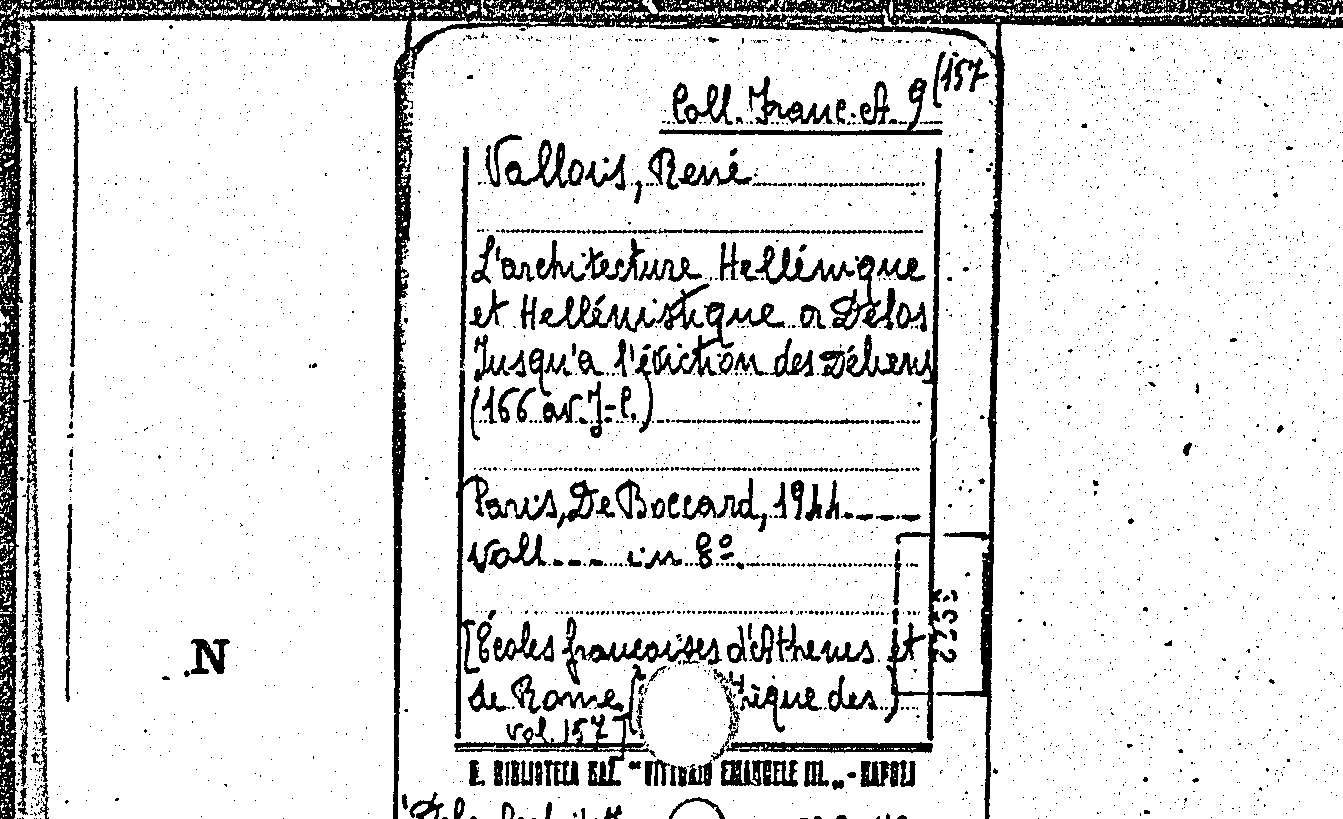 Coll. Franc. A. 9 (157
Vallois, René
L'architecture Hellénique
et Hellénistique a Délos
Jusqu'a l'éviction des Déliens
(166 av. J-C.)
Paris, De Boccard, 1944----
Voll.--- in 8º.
[Écoles françaises d'Athenes et
de Rome ( thèque des )
vol. 157]
N
R. BIBLIOTECA NAZ. "VITTORIO EMANUELE III„ - NAPOLI